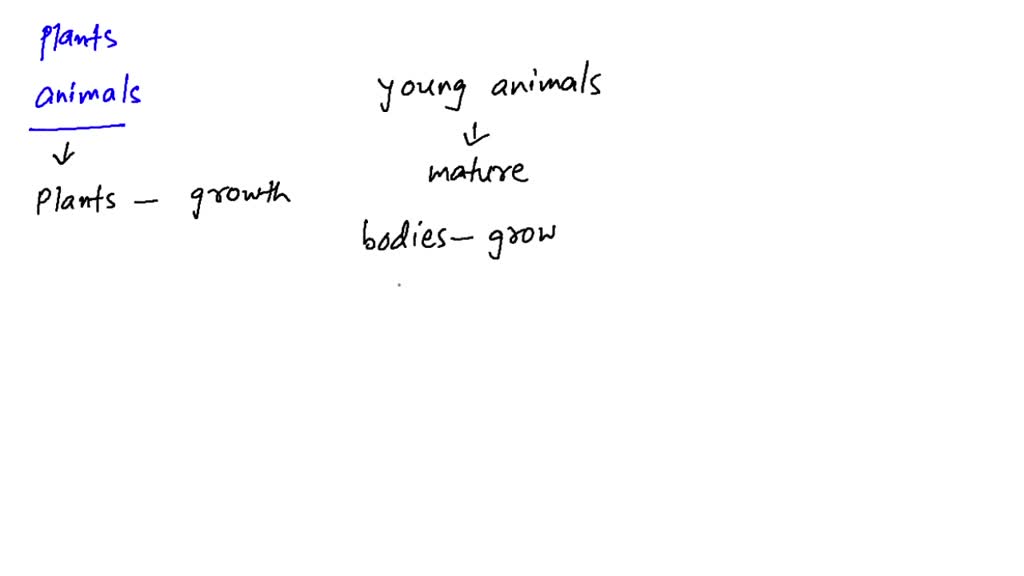 plants
animals
↓
plants — growth
young animals
↓
mature
bodies — grow